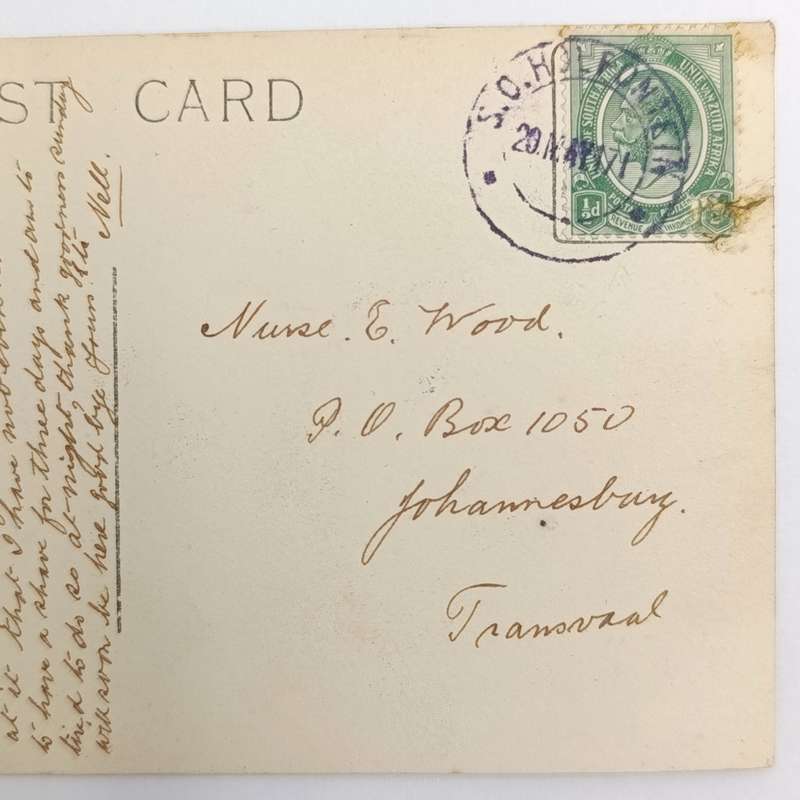 ST CARD
S.O. HOLFONTEIN
20 MAY 17
UNIE VAN ZUID AFRIKA
OF SOUTH AFRICA
½d
REVENUE
Nurse. E. Wood.
P. O. Box 1050
Johannesburg.
Transvaal
at it that I have not even
to have a shave for three days and am to
tir'd to do so at night, thank goodness sunday
will soon be here good bye Yours
Nell.